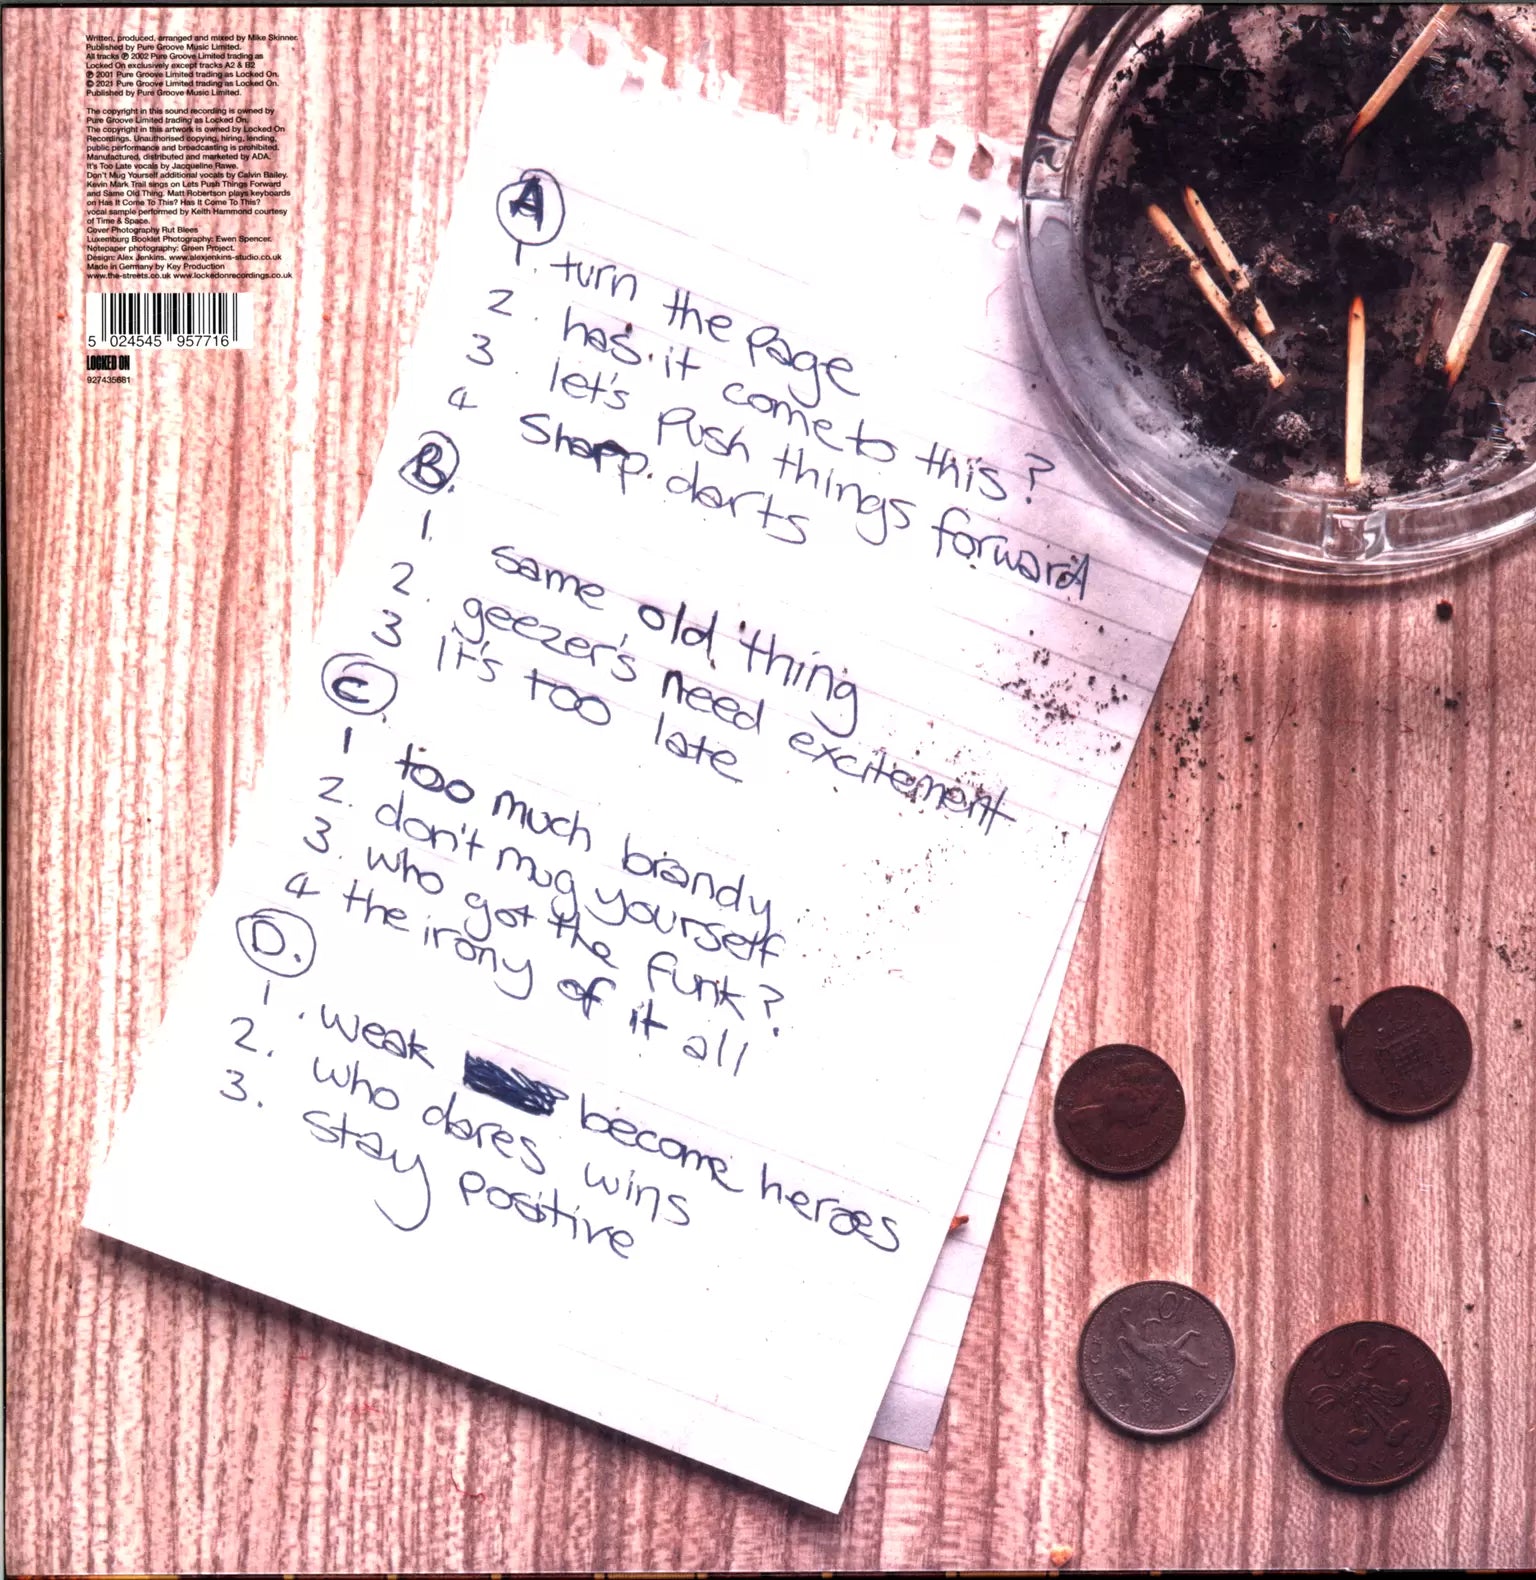 Written, produced, arranged and mixed by Mike Skinner.
Published by Pure Groove Music Limited.
All tracks ℗ 2002 Pure Groove Limited trading as
Locked On exclusively except tracks A2 & B2
℗ 2001 Pure Groove Limited trading as Locked On.
© 2021 Pure Groove Limited trading as Locked On.
Published by Pure Groove Music Limited.
The copyright in this sound recording is owned by
Pure Groove Limited trading as Locked On.
The copyright in this artwork is owned by Locked On
Recordings. Unauthorised copying, hiring, lending,
public performance and broadcasting is prohibited.
Manufactured, distributed and marketed by ADA.
It's Too Late vocals by Jacqueline Rawe.
Don't Mug Yourself additional vocals by Calvin Bailey.
Kevin Mark Trail sings on Lets Push Things Forward
and Same Old Thing. Matt Robertson plays keyboards
on Has It Come To This? Has It Come To This?
vocal sample performed by Keith Hammond courtesy
of Time & Space.
Cover Photography Rut Blees
Luxemburg Booklet Photography: Ewen Spencer.
Notepaper photography: Green Project.
Design: Alex Jenkins. www.alexjenkins-studio.co.uk
Made in Germany by Key Production
www.the-streets.co.uk www.lockedonrecordings.co.uk
5 024545 957716
LOCKED ON
927435681
A
1. turn the page
2. has it come to this?
3. let's push things forward
4 Sharp darts
B.
1. same old thing
2. geezer's need excitement
3 It's too late
C.
1 too much brandy
2. don't mug yourself
3. who got the funk?
4 the irony of it all
D.
1. weak become heroes
2. who dares wins
3. stay positive
10
2